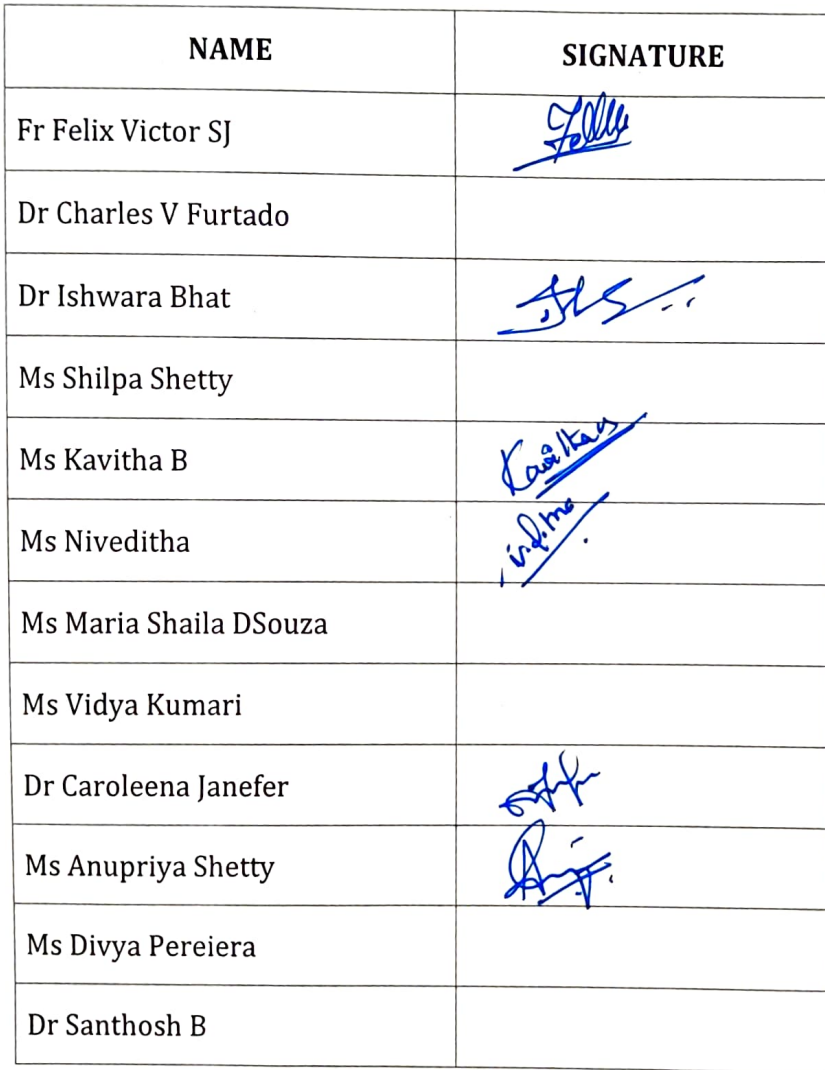 NAME SIGNATURE
Fr Felix Victor SJ
Dr Charles V Furtado
Dr Ishwara Bhat
Ms Shilpa Shetty
Ms Kavitha B Kavitha
Ms Niveditha
Ms Maria Shaila DSouza
Ms Vidya Kumari
Dr Caroleena Janefer
Ms Anupriya Shetty
Ms Divya Pereiera
Dr Santhosh B